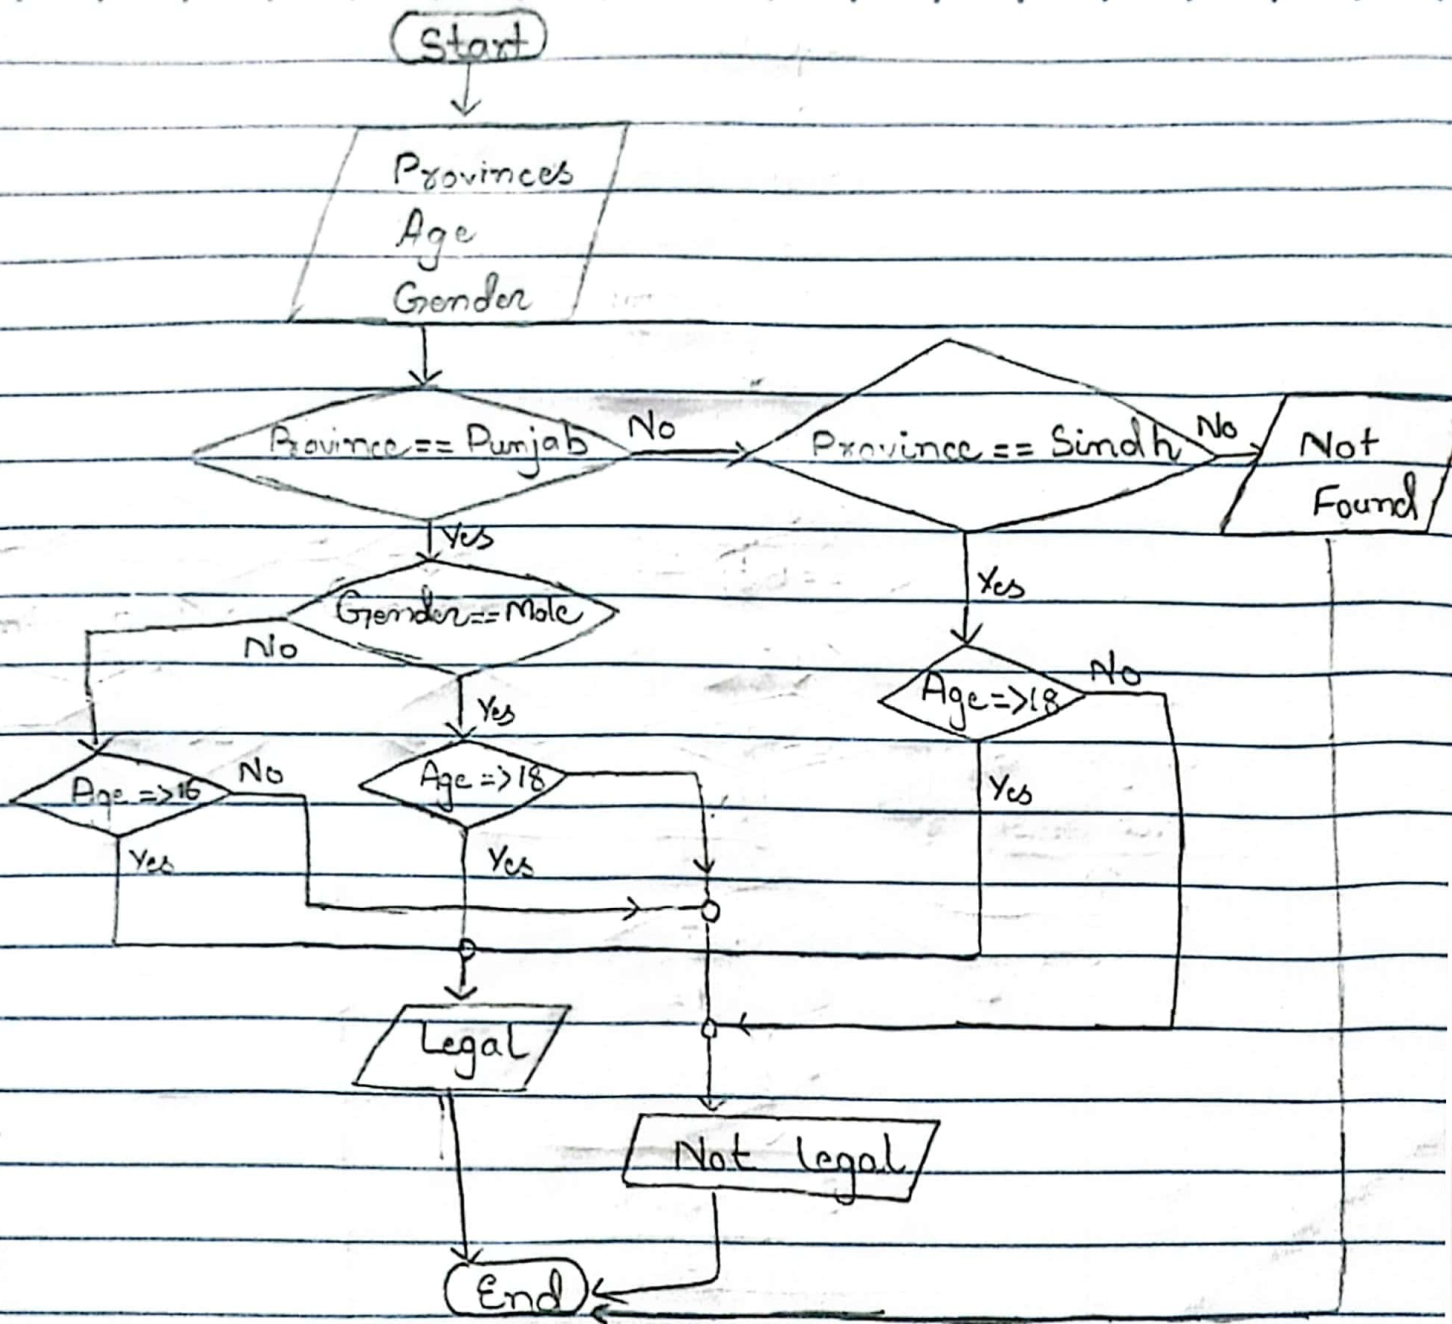 Start
Provinces
Age
Gender
Province == Punjab
No
Province == Sindh
No
Not
Found
Yes
Gender==Male
No
Yes
Yes
Age=>18
No
Age =>16
No
Age =>18
Yes
Yes
Yes
Legal
Not legal
End